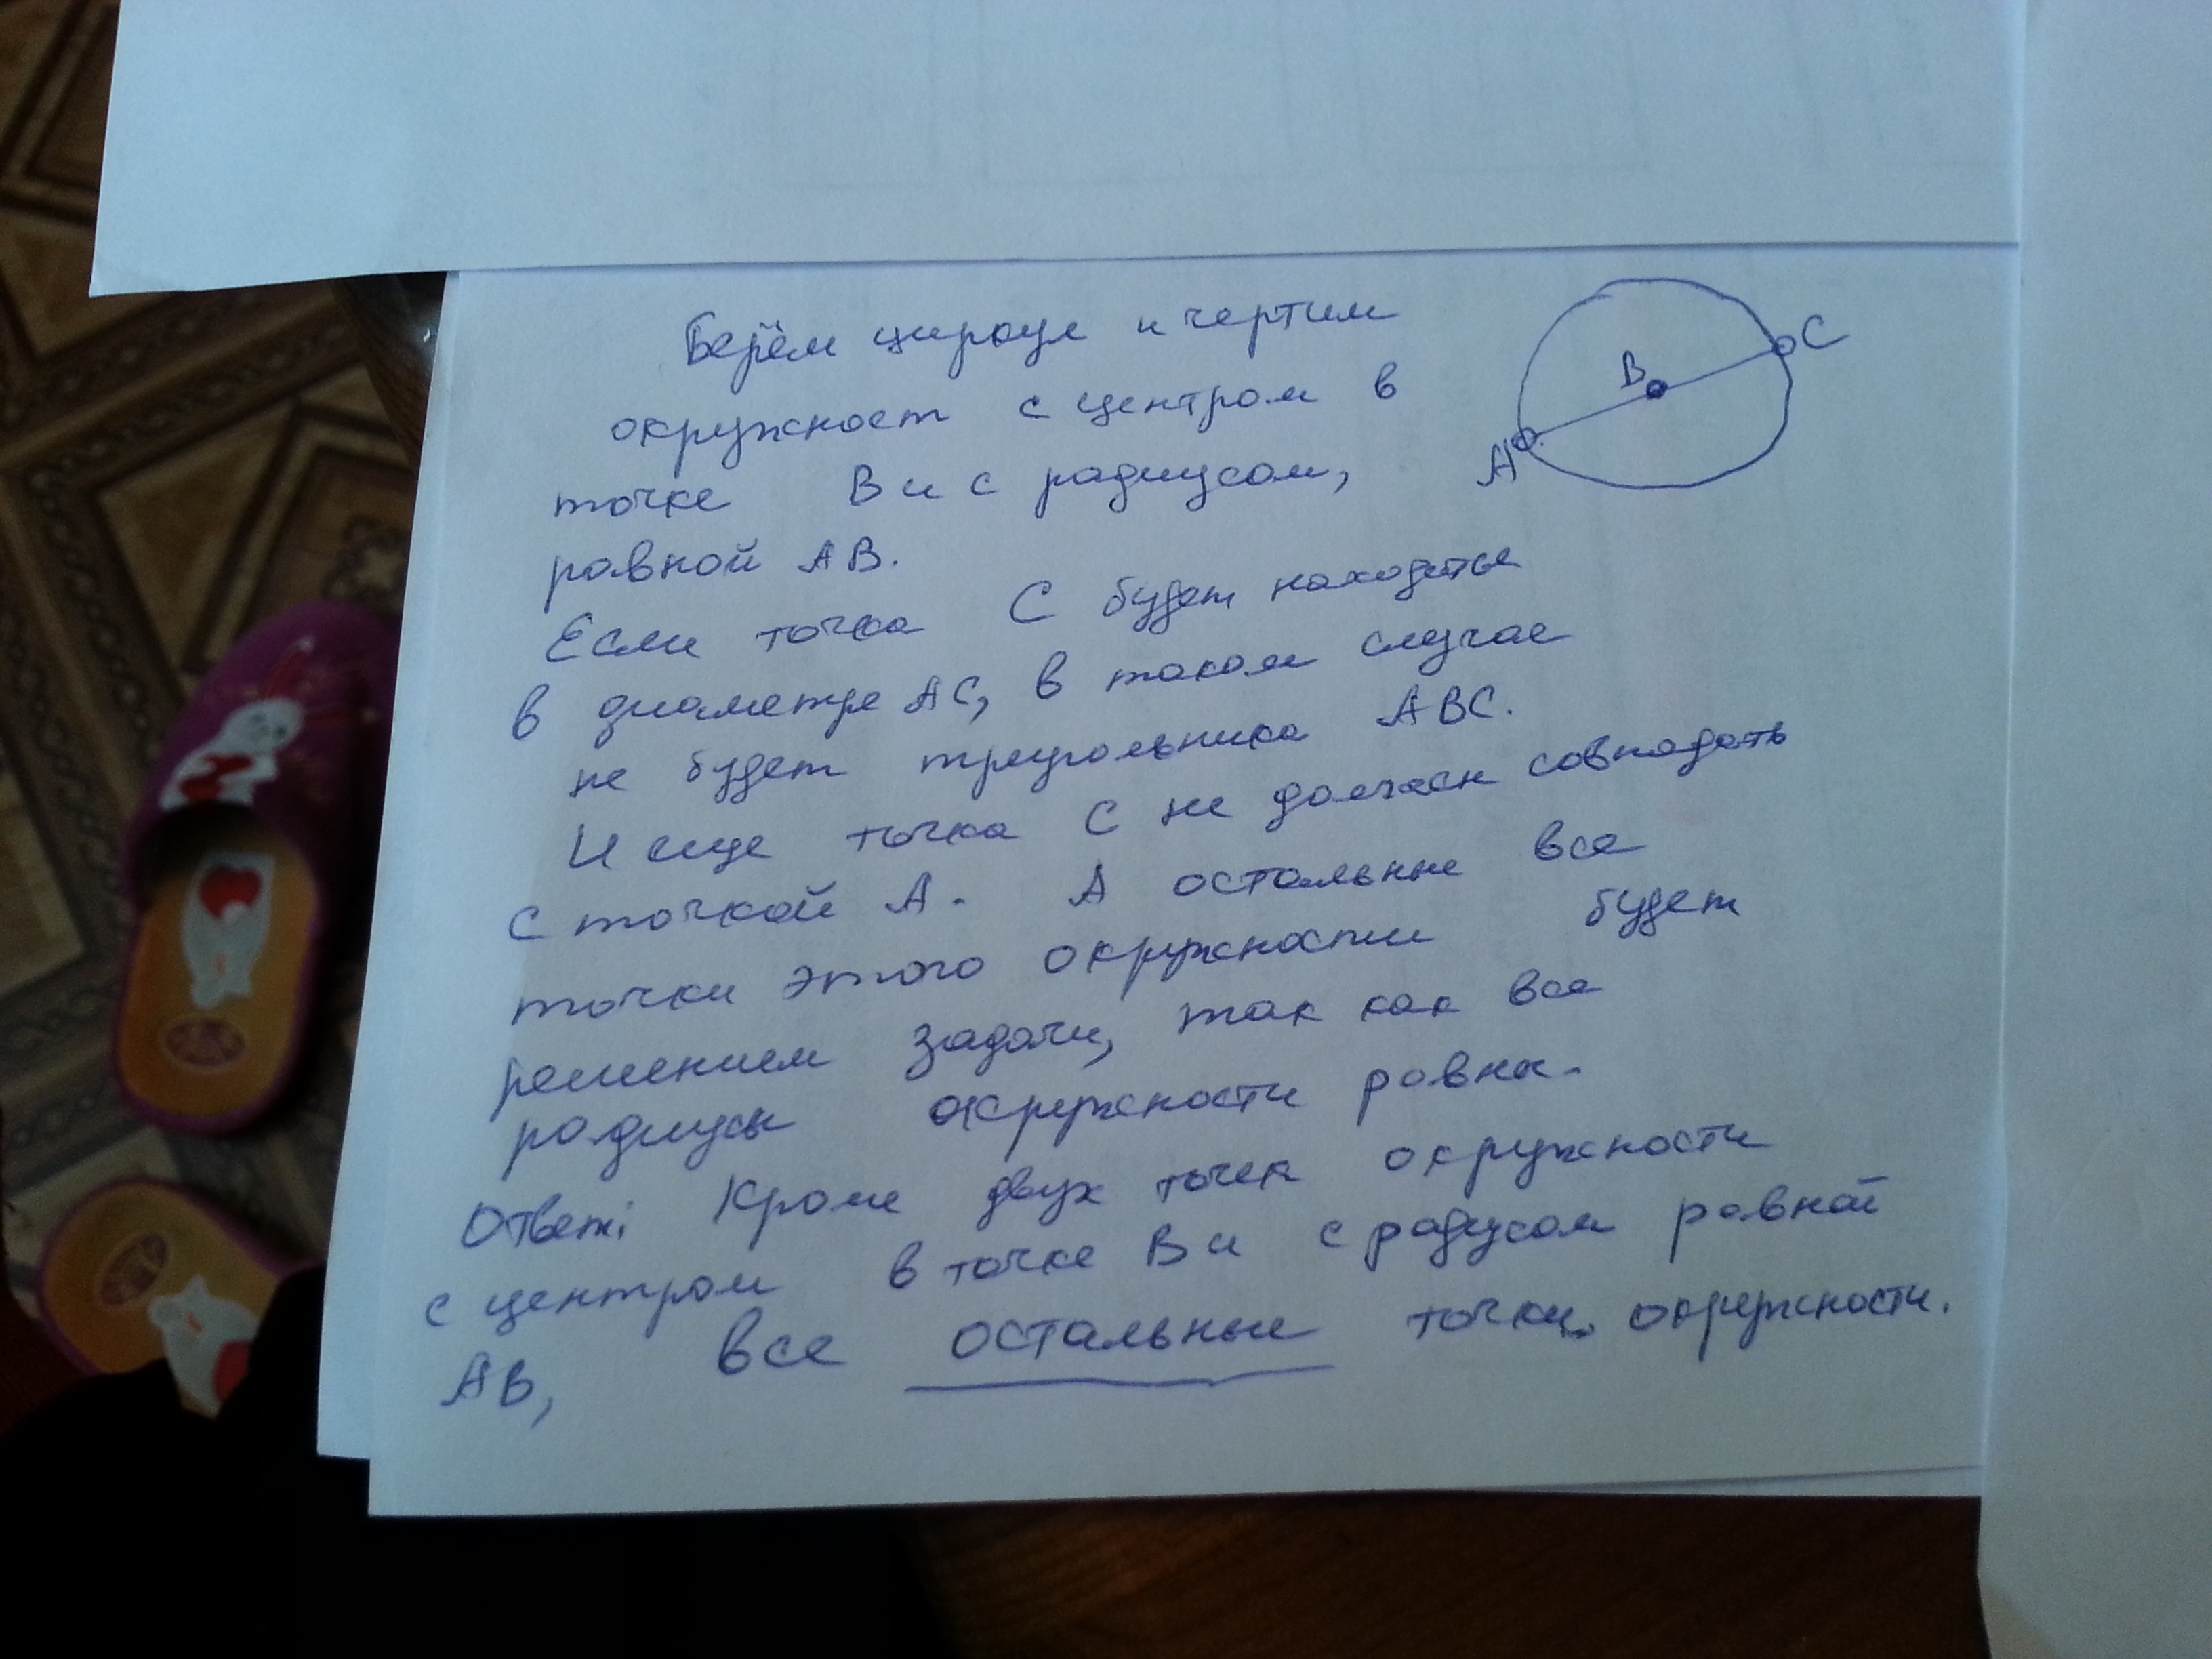 Берём циркул и чертим
окружност с центром в
точке В и с радиусом,
равной АВ.
Если точка С будет находиться
в диаметре АС, в таком случае
не будет треугольника АВС.
И еще точка С не должен совпадать
с точкой А. А остальные все
точки этого окружности будет
решением задачи, так как все
радиусы окружности равны.
Ответ: Кроме двух точек окружности
с центром в точке В и с радиусом равной
АВ, все остальные точки окружности.
А
В
С